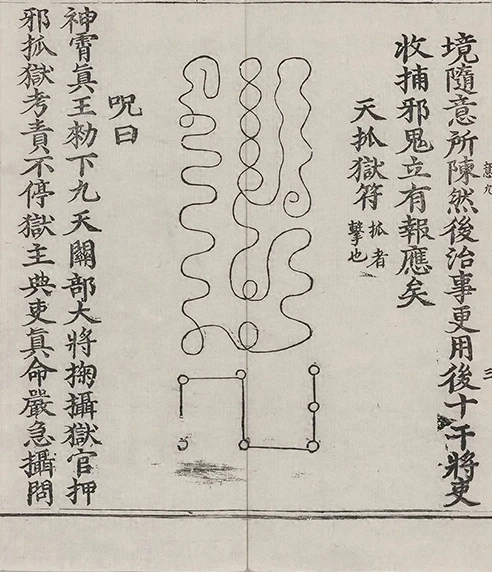 境隨意所陳然後治事更用後十干將吏
收捕邪鬼立有報應矣
天抓獄符抓者擊也
呪曰
神霄眞王勑下九天關部大將掬攝獄官押
邪抓獄考責不停獄主典吏眞命嚴急攝問
三